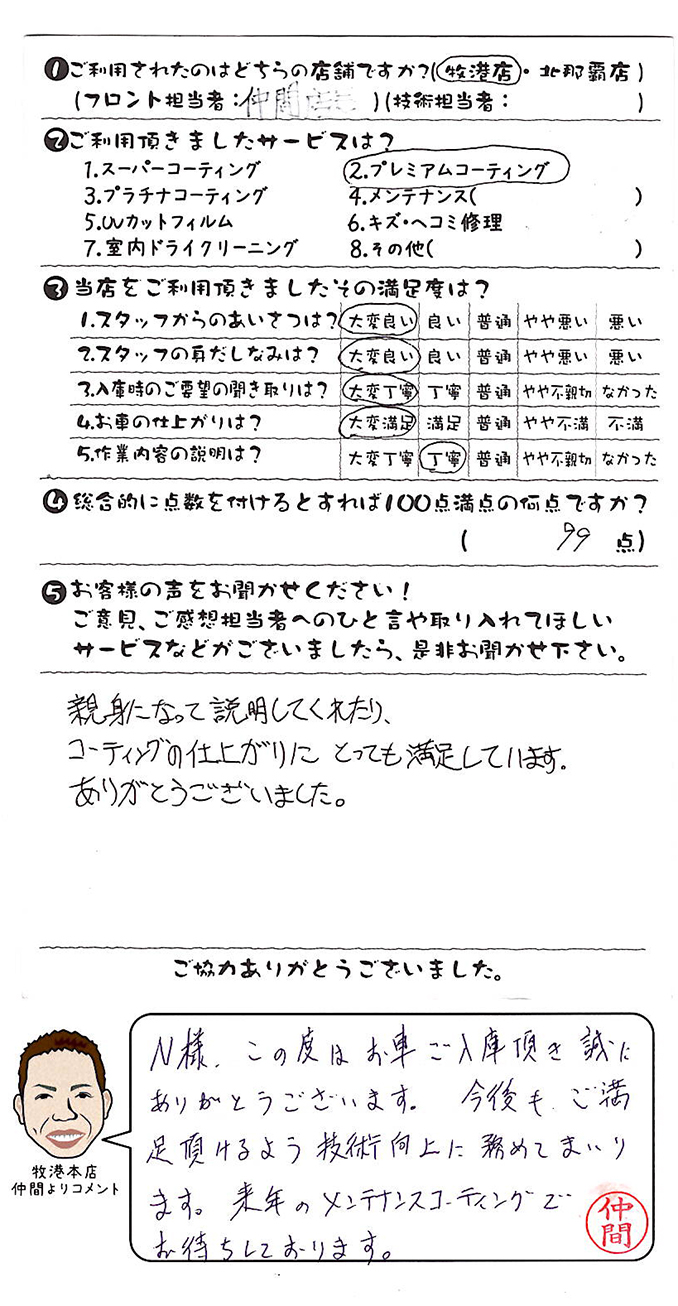 ❶ご利用されたのはどちらの店舗ですか?(牧港店・北那覇店)
(フロント担当者:仲間)(技術担当者: )
❷ご利用頂きましたサービスは?
1.スーパーコーティング 2.プレミアムコーティング
3.プラチナコーティング 4.メンテナンス( )
5.UVカットフィルム 6.キズ・ヘコミ修理
7.室内ドライクリーニング 8.その他( )
❸当店をご利用頂きましたその満足度は?
1.スタッフからのあいさつは? 大変良い 良い 普通 やや悪い 悪い
2.スタッフの身だしなみは? 大変良い 良い 普通 やや悪い 悪い
3.入庫時のご要望の聞き取りは? 大変丁寧 丁寧 普通 やや不親切 なかった
4.お車の仕上がりは? 大変満足 満足 普通 やや不満 不満
5.作業内容の説明は? 大変丁寧 丁寧 普通 やや不親切 なかった
❹総合的に点数を付けるとすれば100点満点の何点ですか?
( 99 点)
❺お客様の声をお聞かせください!
ご意見、ご感想担当者へのひと言や取り入れてほしい
サービスなどがございましたら、是非お聞かせ下さい。
親身になって説明してくれたり、
コーティングの仕上がりにとっても満足しています。
ありがとうございました。
ご協力ありがとうございました。
N様、この度はお車ご入庫頂き誠に
ありがとうございます。今後も、ご満
足頂けるよう技術向上に務めてまいり
ます。来年のメンテナンスコーティングで
お待ちしております。
仲間
牧港本店
仲間よりコメント